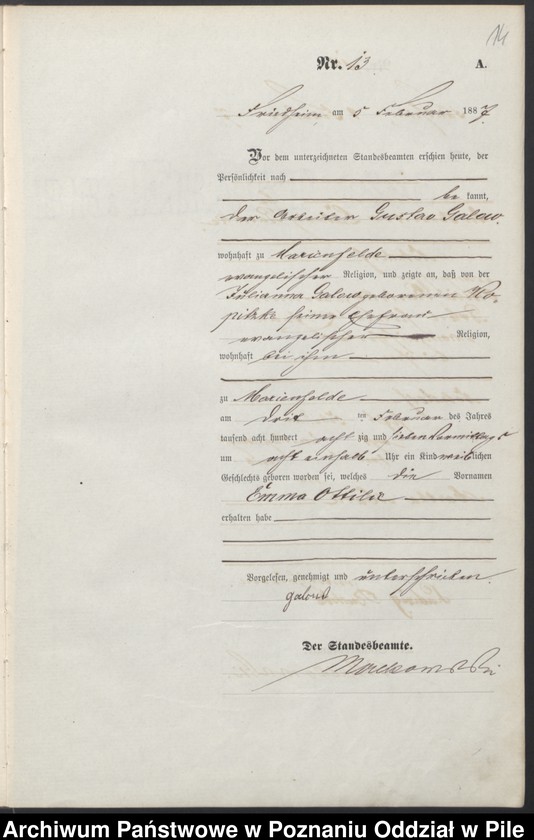 14
Nr. 13 A.
Friedheim, am 5 Februar 1887.
Vor dem unterzeichneten Standesbeamten erschien heute, der
Persönlichkeit nach
be kannt,
der Arbeiter Gustav Galow.
wohnhaft zu Marienfelde
evangelischer Religion, und zeigte an, daß von der
Julianna Galow geborenen Ko-
pitzke seine Ehefrau
evangelischer Religion,
wohnhaft bei ihm
zu Marienfelde
am drit ten Februar des Jahres
tausend acht hundert acht zig und sieben Vormittags
um acht einhalb Uhr ein Kind weiblichen
Geschlechts geboren worden sei, welches die Vornamen
Emma Ottilie
erhalten habe
Vorgelesen, genehmigt und unterschrieben.
Galow
Der Standesbeamte.
Archiwum Państwowe w Poznaniu Oddział w Pile